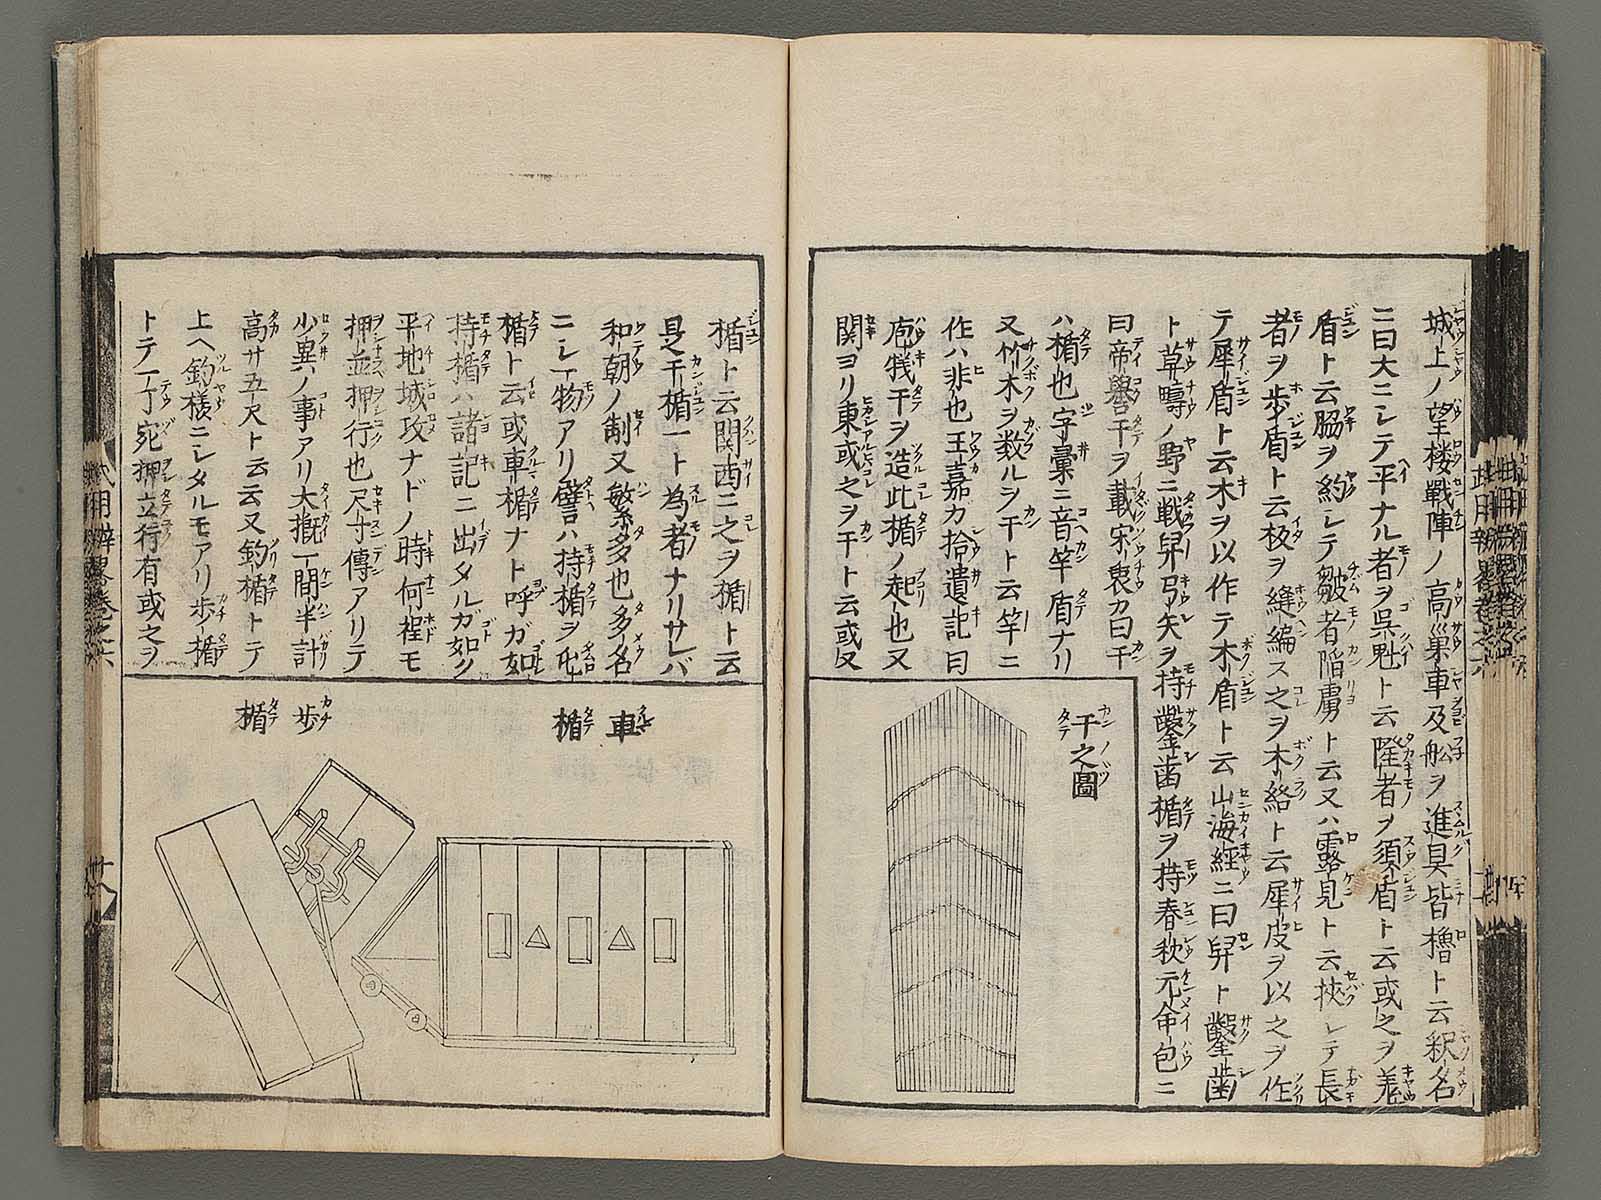 城上ノ望楼戰陣ノ高巢車及舩ヲ進具皆櫓ト云釈名
ニ曰大ニシテ平ナル者ヲ呉魁ト云隆者ヲ須盾ト云或之ヲ羗
盾ト云脇ヲ約シテ皺者陷虜ト云又ハ露見ト云挾シテ長
者ヲ歩盾ト云板ヲ縫編ス之ヲ木絡ト云犀皮ヲ以之ヲ作
テ犀盾ト云木ヲ以作テ木盾ト云山海經ニ曰羿ト鑿歯
ト草疇ノ野ニ戰羿弓矢ヲ持鑿歯楯ヲ持春秋元命包ニ
曰帝嚳干ヲ載宋衷カ曰干
ハ楯也字彙ニ音竿盾ナリ
又竹木ヲ数ルヲ干ト云竿ニ
作ハ非也王嘉ガ拾遺記曰
庖犠干ヲ造此楯ノ起也又
関ヨリ東或之ヲ干ト云或又
干之圖
楯ト云関西ニ之ヲ楯ト云
是干楯一ト為者ナリサレバ
和朝ノ制又敏系多也多名
ニシテ一物アリ譬ハ持楯ヲ
楯ト云或車楯ナト呼ガ如
持楯ハ諸記ニ出タルガ如ク
平地城攻ナドノ時何程モ
押並押行也尺寸傳アリテ
少異ノ事アリ大概一間半計
高サ五尺ト云云又釣楯トテ
上ヘ釣様ニシタルモアリ歩楯
トテ一丁宛押立行有或之ヲ
車楯
歩楯